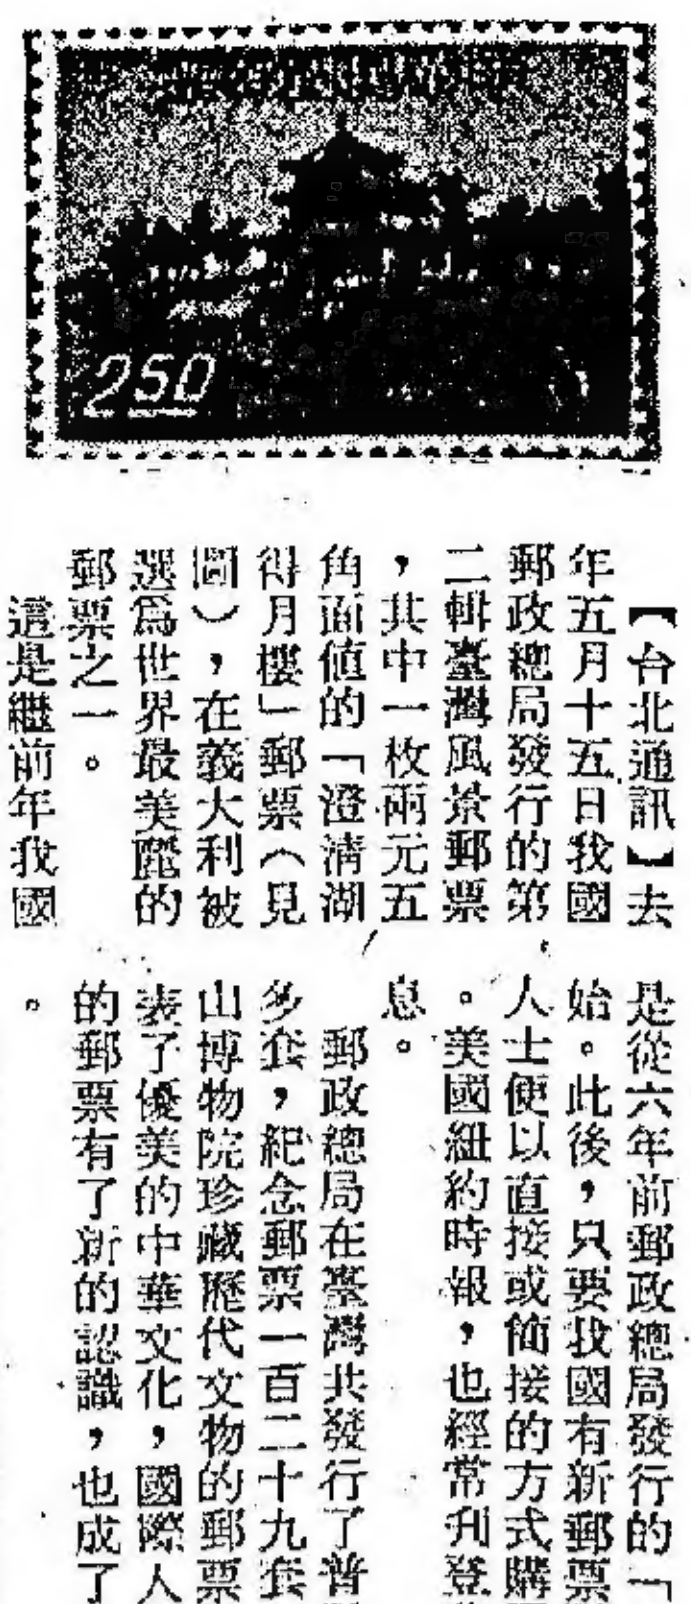 250
【台北通訊】去
年五月十五日我國
郵政總局發行的第
二輯臺灣風景郵票
，其中一枚兩元五
角面値的「澄清湖
得月樓」郵票（見
圖），在義大利被
選爲世界最美麗的
郵票之一。
這是繼前年我國
是從六年前郵政總局發行的「
始。此後，只要我國有新郵票
人士便以直接或簡接的方式購
。美國紐約時報，也經常刋登
息。
郵政總局在臺灣共發行了普
多套，紀念郵票一百二十九套
山博物院珍藏歷代文物的郵票
表了優美的中華文化，國際人
的郵票有了新的認識，也成了
。